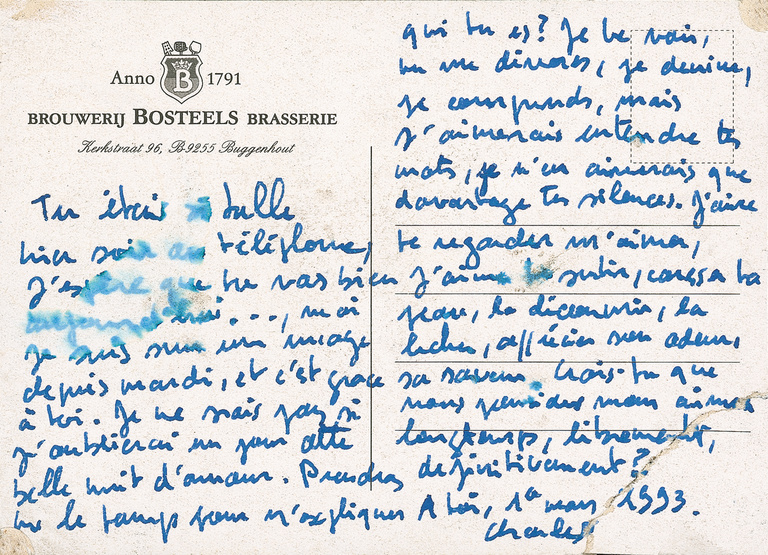 Anno 1791
B
BROUWERIJ BOSTEELS BRASSERIE
Kerkstraat 96, B-9255 Buggenhout
Tu étais si belle
hier soir au téléphone,
j'espère que tu vas bien
aujourd'hui..., moi
je suis sur un nuage
depuis mardi, et c'est grâce
à toi. Je ne sais pas si
j'oublierai un jour cette
belle nuit d'amour. Prendras
tu le temps pour m'expliquer
qui tu es? Je te vois,
tu me dévores, je devine,
je comprends, mais
j'aimerais entendre tes
mots, je n'en aimerais que
davantage tes silences. J'aime
te regarder m'aimer,
j'aime te sentir, caresser ta
peau, la découvrir, la
lécher, apprécier son odeur,
sa saveur. Crois-tu que
nous puissions nous aimer
longtemps, librement,
définitivement?
A toi, 1er mars 1993.
Charles